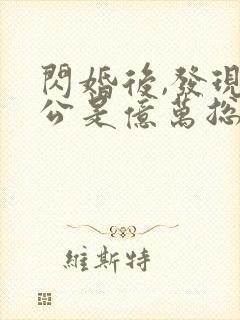 閃婚後,發現
公是億萬总
維斯特